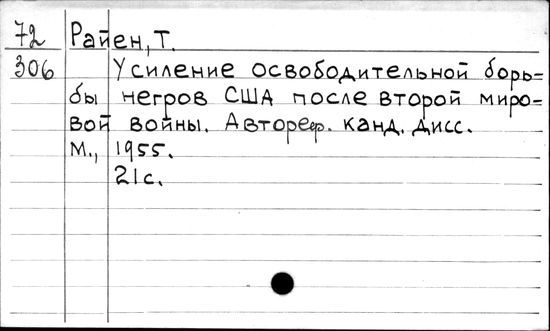 72 Райен, Т.
306 Усиление освободительной борь-
бы негров США после второй миро-
вой войны. Автореф. канд. дисс.
М., 1955.
21с.